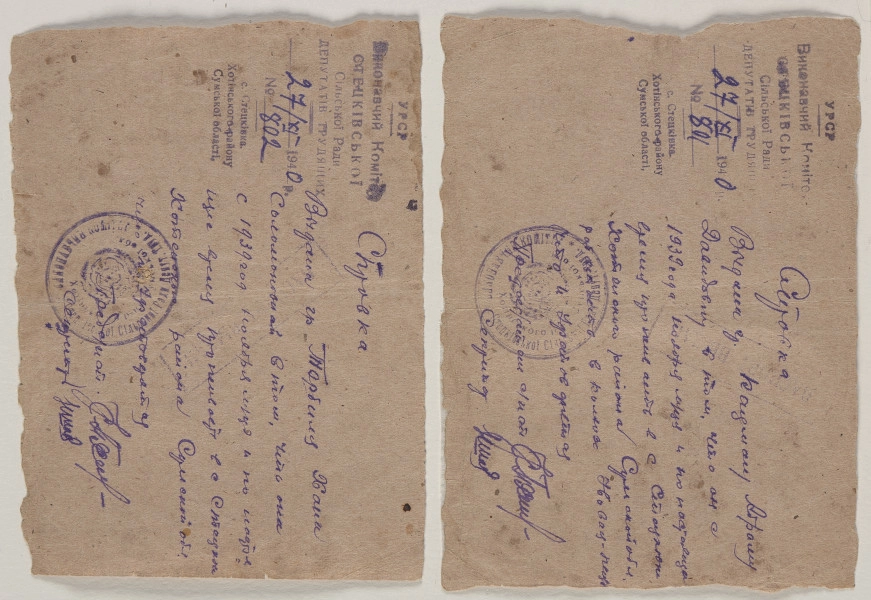 УРСР
Виконавчий Комітет
СТЕЦКІВСЬКОЇ
Сільської Ради
ДЕПУТАТІВ ТРУДЯЩИХ
27/XI 1940 р.
№ 802
с. Стецківка
Хотінського району
Сумської області,
Справка
Выдана гр. Тарбиля Хана
Соломоновной в том, что она
с 1939 год ноября м-ца и по
время проживает в с Стецков
Хотенского района Сумской обл
удостоверяется
Пред
Секретар
УРСР
Виконавчий Комітет
СТЕЦКІВСЬКОЇ
Сільської Ради
ДЕПУТАТІВ ТРУДЯЩИХ
27/XI 1940 р.
№ 801
с. Стецківка
Хотінського району
Сумської області,
Справка
Выдана гр. Кацману Абраму
Давидову в том, что он с
1939 года ноября м-ца и по настояще
время проживает в с
Хотенского района Сумской обл.
в колхоз
что и удостоверяется
Секретар